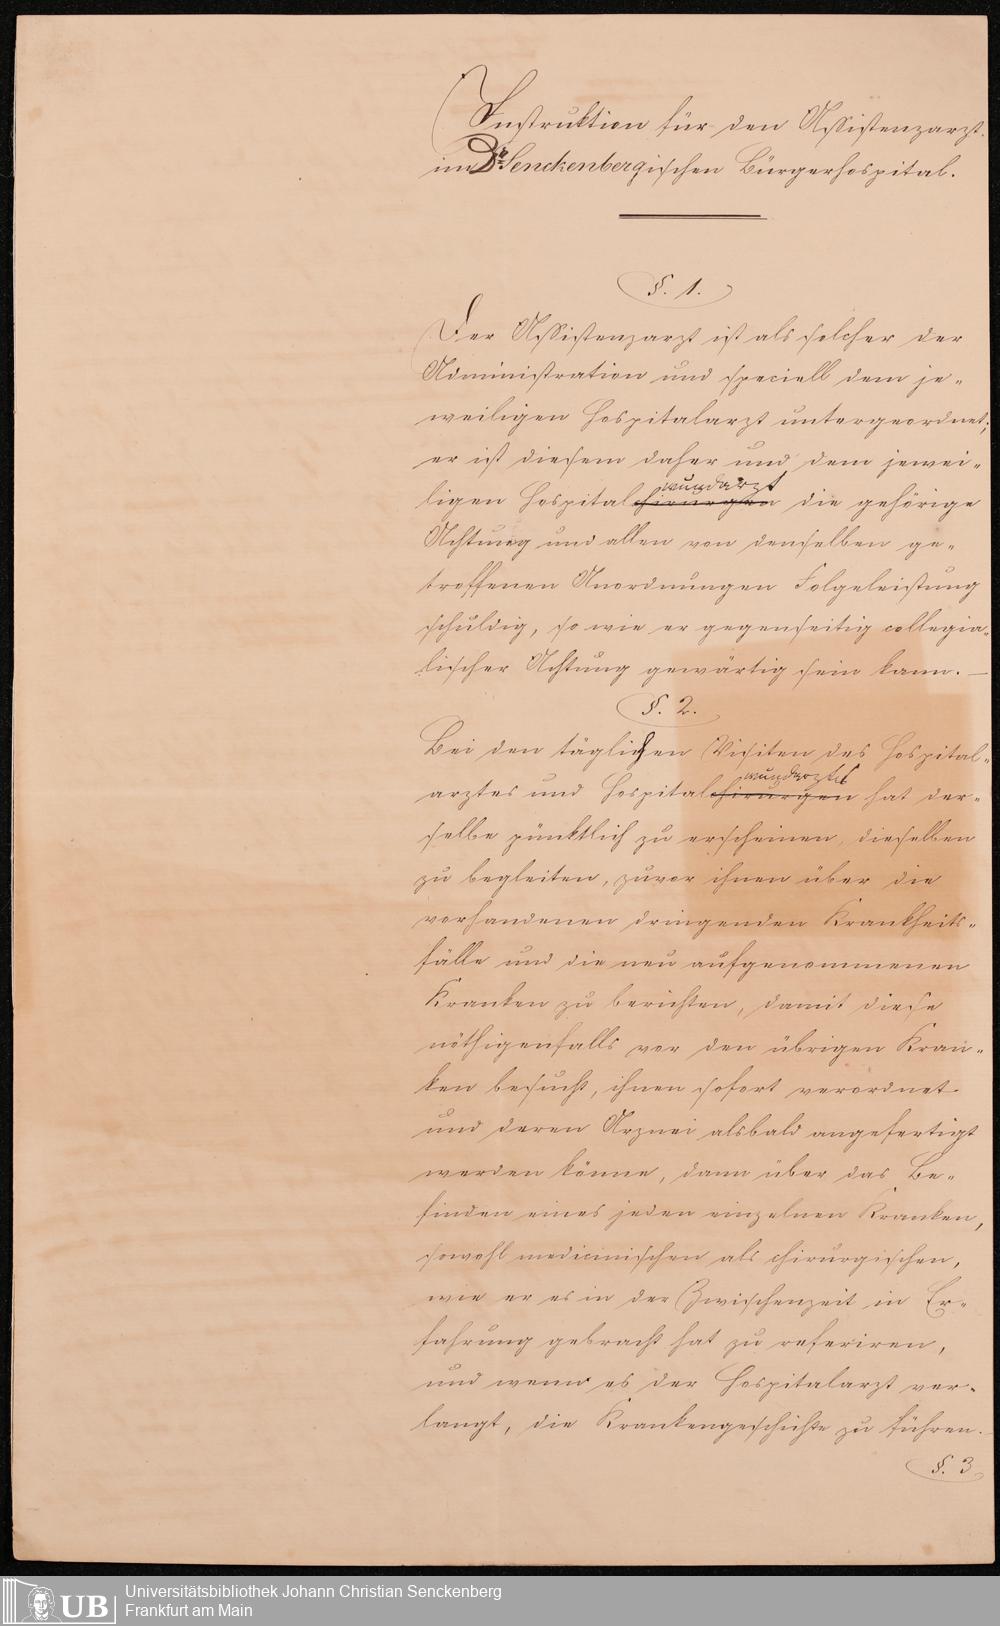 Instruktion für den Assistenzarzt
im Dr. Senckenbergischen Bürgerhospital.
§. 1.
Der Assistenzarzt ist als solcher der
Administration und speciell dem je-
weiligen Hospitalarzt untergeordnet;
er ist diesem daher und dem jewei-
wundarzt
ligen Hospitalchirurgen die gehörige
Achtung und allen von denselben ge-
troffenen Anordnungen Folgeleistung
schuldig, so wie er gegenseitig collegia-
lischer Achtung gewärtig sein kann. —
§. 2.
Bei den täglichen Visiten des Hospital-
wundarztes
arztes und Hospitalchirurgen hat der-
selbe pünktlich zu erscheinen, dieselben
zu begleiten, zuvor ihnen über die
vorhandenen dringenden Krankheits-
fälle und die neu aufgenommenen
Kranken zu berichten, damit diese
nöthigenfalls vor den übrigen Kran-
ken besucht, ihnen sofort verordnet
und deren Arznei alsbald angefertigt
werden könne, dann über das Be-
finden eines jeden einzelnen Kranken,
sowohl medicinischen als chirurgischen,
wie er es in der Zwischenzeit in Er-
fahrung gebracht hat zu referiren,
und wenn es der Hospitalarzt ver-
langt, die Krankengeschichte zu führen.
§. 3
UB
Universitätsbibliothek Johann Christian Senckenberg
Frankfurt am Main